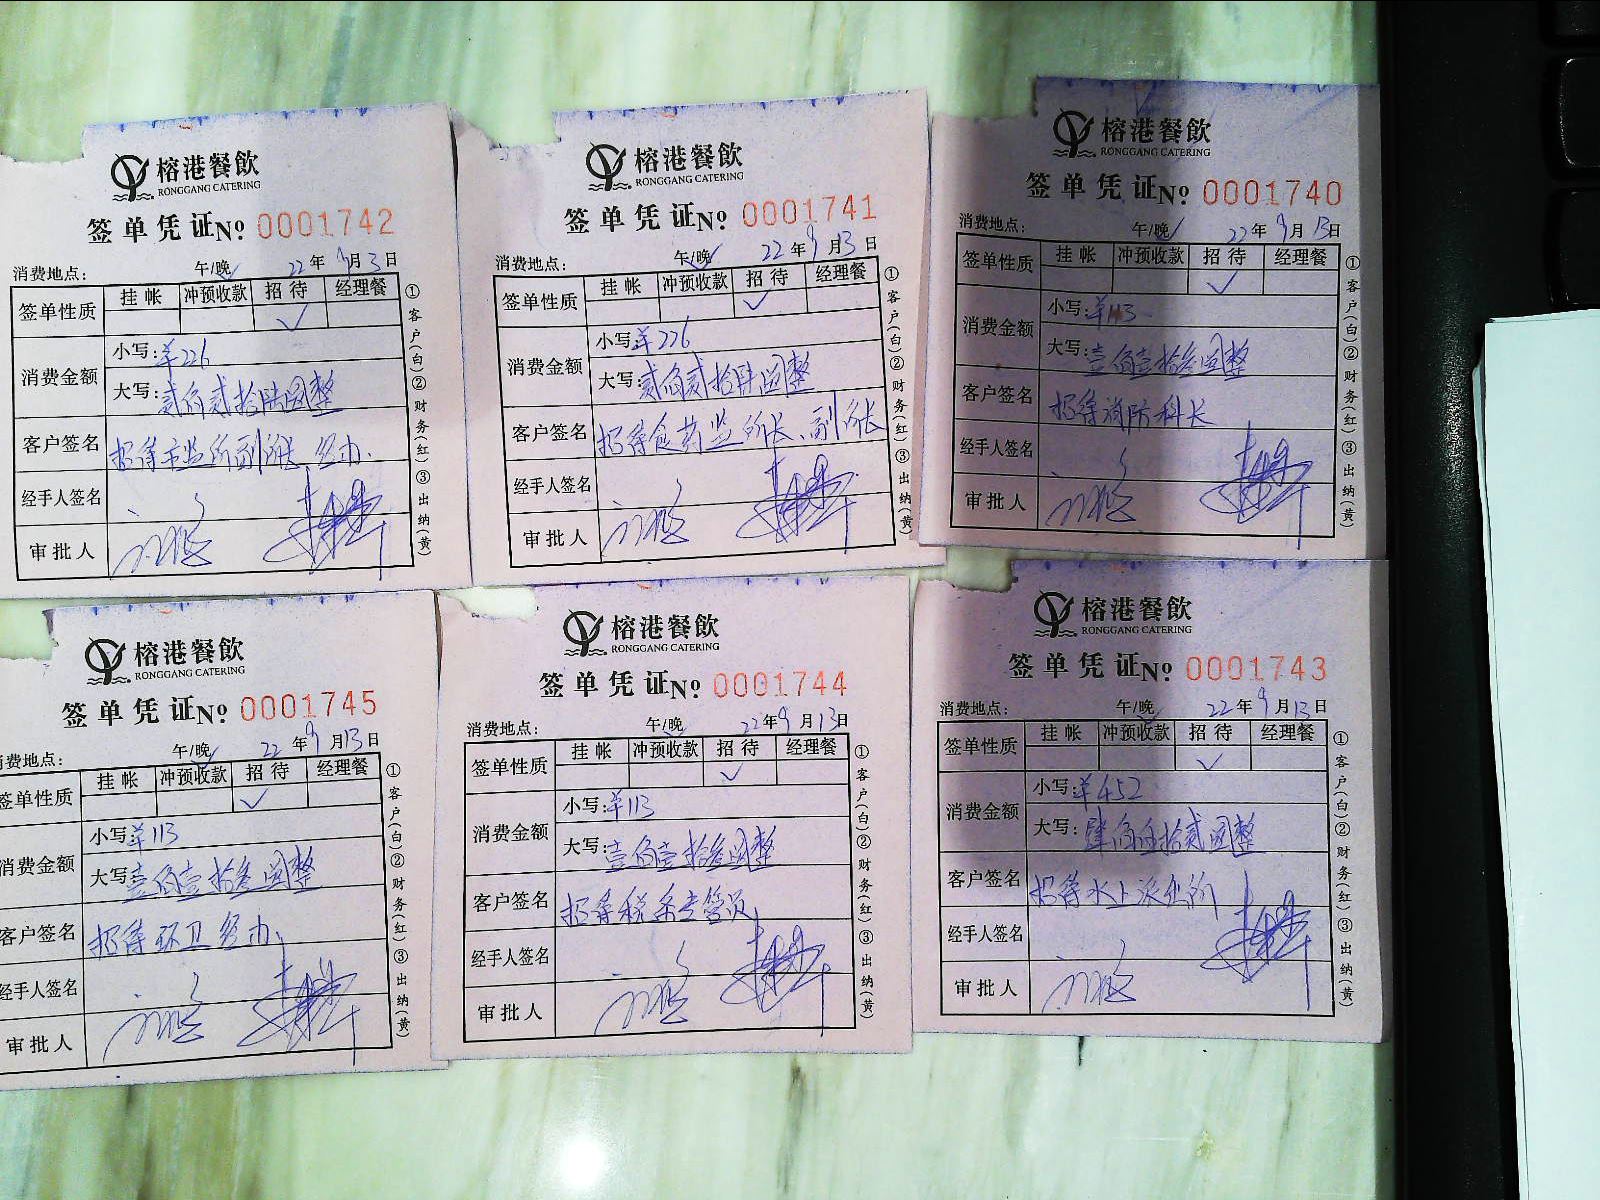 榕港餐飲
RONGGANG CATERING
签单凭证№ 0001742
消费地点: 午/晚✓ 22年9月3日
签单性质 挂帐 冲预收款 招待 经理餐
✓
消费金额 小写:羊226
大写:贰佰贰拾陆圆整
客户签名 招待市监所副所长 经办.
经手人签名
审批人
①客户(白)②财务(红)③出纳(黄)
榕港餐飲
RONGGANG CATERING
签单凭证№ 0001741
消费地点: 午/晚✓ 22年9月13日
签单性质 挂帐 冲预收款 招待 经理餐
✓
消费金额 小写:羊226
大写:贰佰贰拾陆圆整
客户签名 招待食药监所长、副所长
经手人签名
审批人
①客户(白)②财务(红)③出纳(黄)
榕港餐飲
RONGGANG CATERING
签单凭证№ 0001740
消费地点: 午/晚✓ 22年9月13日
签单性质 挂帐 冲预收款 招待 经理餐
✓
消费金额 小写:羊113
大写:壹佰壹拾叁圆整
客户签名 招待消防科长
经手人签名
审批人
①客户(白)②财务(红)③出纳(黄)
榕港餐飲
RONGGANG CATERING
签单凭证№ 0001745
消费地点: 午/晚✓ 22年9月13日
签单性质 挂帐 冲预收款 招待 经理餐
✓
消费金额 小写:羊113
大写:壹佰壹拾叁圆整
客户签名 招待环卫经办.
经手人签名
审批人
①客户(白)②财务(红)③出纳(黄)
榕港餐飲
RONGGANG CATERING
签单凭证№ 0001744
消费地点: 午/晚✓ 22年9月13日
签单性质 挂帐 冲预收款 招待 经理餐
✓
消费金额 小写:羊113
大写:壹佰壹拾叁圆整
客户签名 招待税务专管员
经手人签名
审批人
①客户(白)②财务(红)③出纳(黄)
榕港餐飲
RONGGANG CATERING
签单凭证№ 0001743
消费地点: 午/晚✓ 22年9月13日
签单性质 挂帐 冲预收款 招待 经理餐
✓
消费金额 小写:羊452
大写:肆佰伍拾贰圆整
客户签名 招待水上派出所
经手人签名
审批人
①客户(白)②财务(红)③出纳(黄)